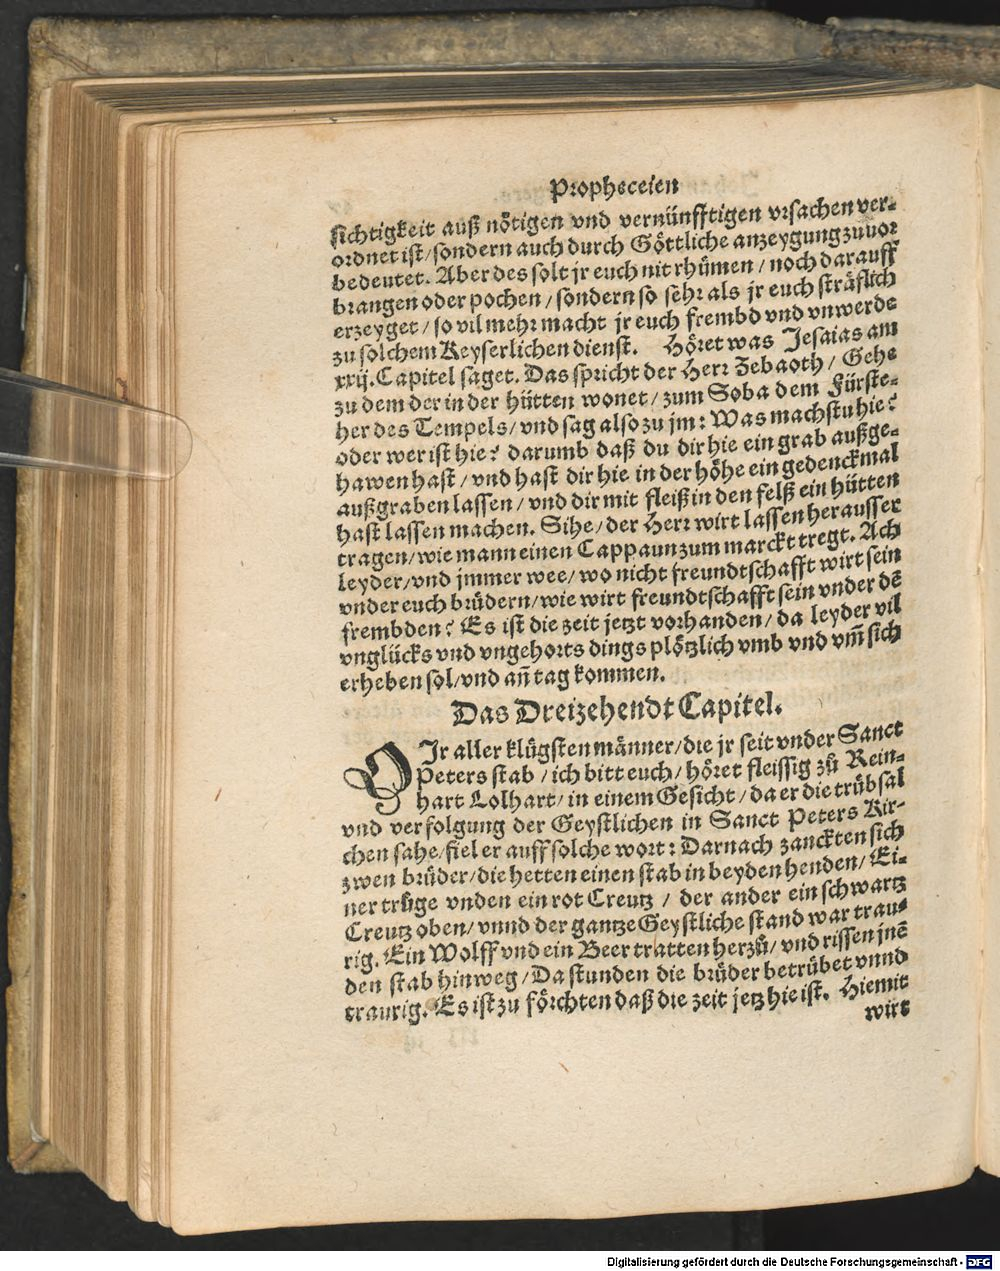 Propheceien
sichtigkeit auß nötigen vnd vernünfftigen vrsachen ver-
ordnet ist/ sondern auch durch Göttliche anzeygung zuuor
bedeutet. Aber des solt jr euch nit rhümen/ noch darauff
brangen oder pochen/ sondern so sehr als jr euch sträflich
erzeyget/ so vil mehr macht jr euch frembd vnd vnwerde
zu solchem Keyserlichen dienst. Höret was Jesaias am
xxij. Capitel saget. Das spricht der Herr Zebaoth/ Gehe
zu dem der in der hütten wonet/ zum Soba dem Fürste-
her des Tempels/ vnd sag also zu jm: Was machstu hie?
oder wer ist hie? darumb daß du dir hie ein grab außge-
hawen hast/ vnd hast dir hie in der höhe ein gedenckmal
außgraben lassen/ vnd dir mit fleiß in den felß ein hütten
hast lassen machen. Sihe/ der Herr wirt lassen herausser
tragen/ wie mann einen Cappaun zum marckt tregt. Ach
leyder/ vnd jmmer wee/ wo nicht freundtschafft wirt sein
vnder euch brüdern/ wie wirt freundtschafft sein vnder dẽ
frembden? Es ist die zeit jetzt vorhanden/ da leyder vil
vnglücks vnd vngehorts dings plötzlich vmb vnd vm̃ sich
erheben sol/ vnd an̄ tag kommen.
Das Dreizehendt Capitel.
OJr aller klügsten männer/ die jr seit vnder Sanct
Peters stab/ ich bitt euch/ höret fleissig zů Rein-
hart Lolhart/ in einem Gesicht/ da er die trübsal
vnd verfolgung der Geystlichen in Sanct Peters Kir-
chen sahe/ fiel er auff solche wort: Darnach zanckten sich
zwen brüder/ die hetten einen stab in beyden henden/ Ei-
ner trůge vnden ein rot Creutz/ der ander ein schwartz
Creutz oben/ vnnd der gantze Geystliche stand war trau-
rig. Ein Wolff vnd ein Beer tratten herzů/ vnd rissen jnẽ
den stab hinweg/ Da stunden die brüder betrübet vnnd
traurig. Es ist zu förchten daß die zeit jetz hie ist. Hiemit
wirt
Digitalisierung gefördert durch die Deutsche Forschungsgemeinschaft - DFG